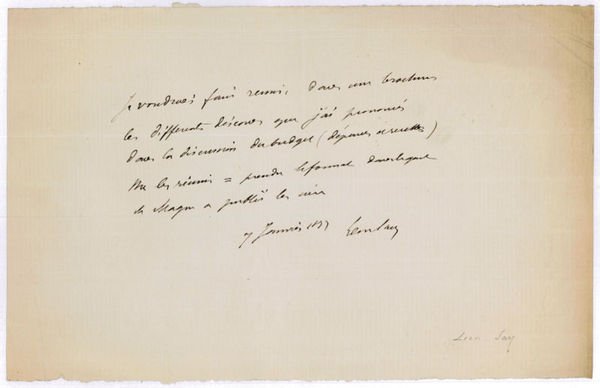 Je voudrais faire réunir dans une brochure
les différents discours que j'ai prononcés
dans la discussion du budget (dépenses et recettes)
les réunir = prendre le format dans lequel
Magne a publié les siens
7 Janvier Léon Say
Léon Say